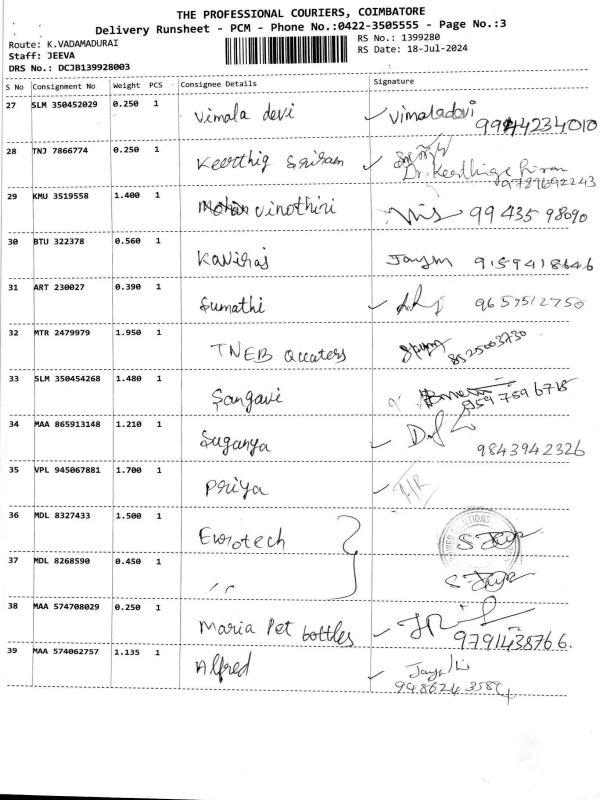 THE PROFESSIONAL COURIERS, COIMBATORE
Delivery Runsheet - PCM - Phone No.:0422-3505555 - Page No.:3
Route: K.VADAMADURAI
RS No.: 1399280
Staff: JEEVA
RS Date: 18-Jul-2024
DRS No.: DCJB139928003
S No Consignment No Weight PCS Consignee Details Signature
27 SLM 350452029 0.250 1 Vimala devi Vimaladevi
9944234010
28 TNJ 7866774 0.250 1 Keerthig Sriram
Dr. Keerthiga
9789692243
29 KMU 3519558 1.400 1 Vinothini 99435 98090
30 BTU 322378 0.560 1 Kaviraj 9159418646
31 ART 230027 0.390 1 Sumathi 9659512750
32 MTR 2479979 1.950 1 TNEB Quaters
8525003730
33 SLM 350454268 1.480 1 Sangavi
34 MAA 865913148 1.210 1 Suganya
9843942326
35 VPL 945067881 1.700 1 Priya HR
36 MDL 8327433 1.500 1 Eurotech
37 MDL 8268590 0.450 1 ,,
38 MAA 574708029 0.250 1 Maria Pet bottles
9791438766.
39 MAA 574062757 1.135 1 Alfred